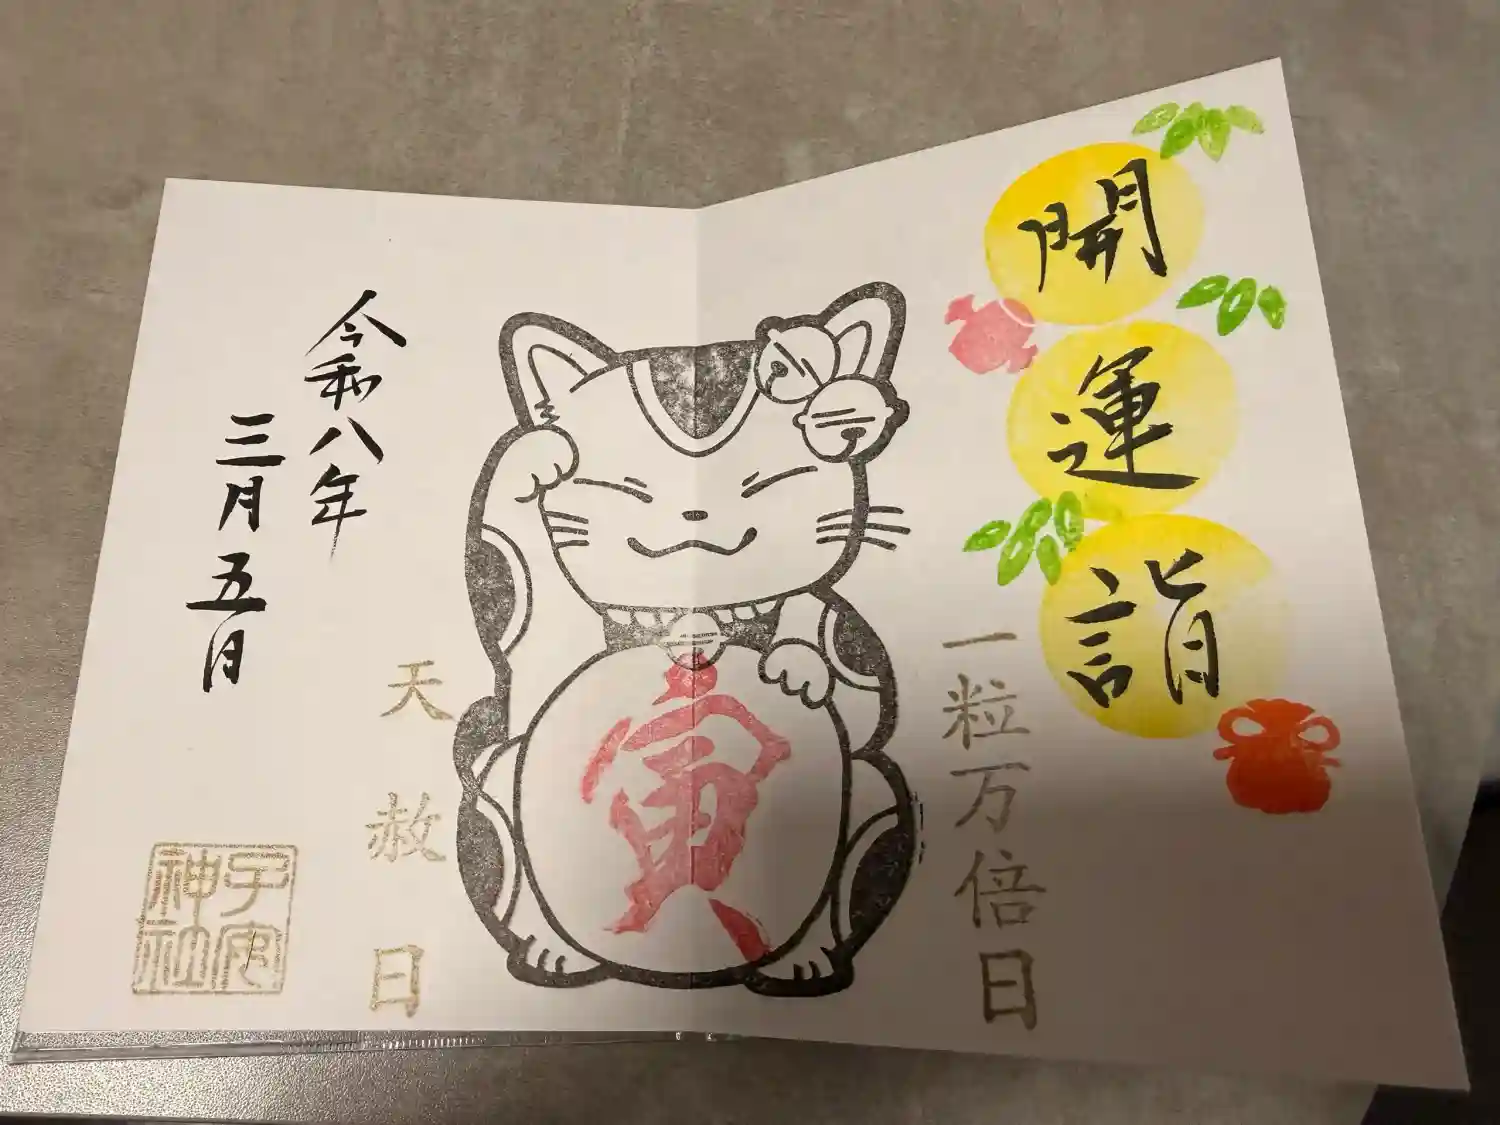 開運詣
一粒万倍日
寅
天赦日
令和八年
三月五日
子安神社